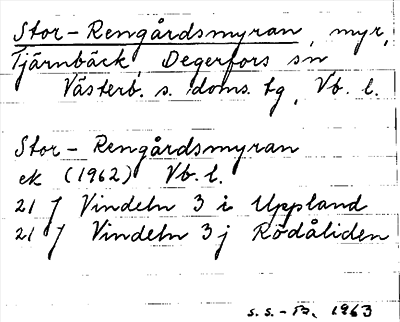 Stor-Rengårdsmyran, myr,
Tjärnbäck, Degerfors sn
Västerb. s. doms. tg, Vb. l.
Stor-Rengårdsmyran
ek (1962) Vb. l.
21 J Vindeln 3 i Uppland
21 J Vindeln 3 j Rödåliden
s.s. - 1963